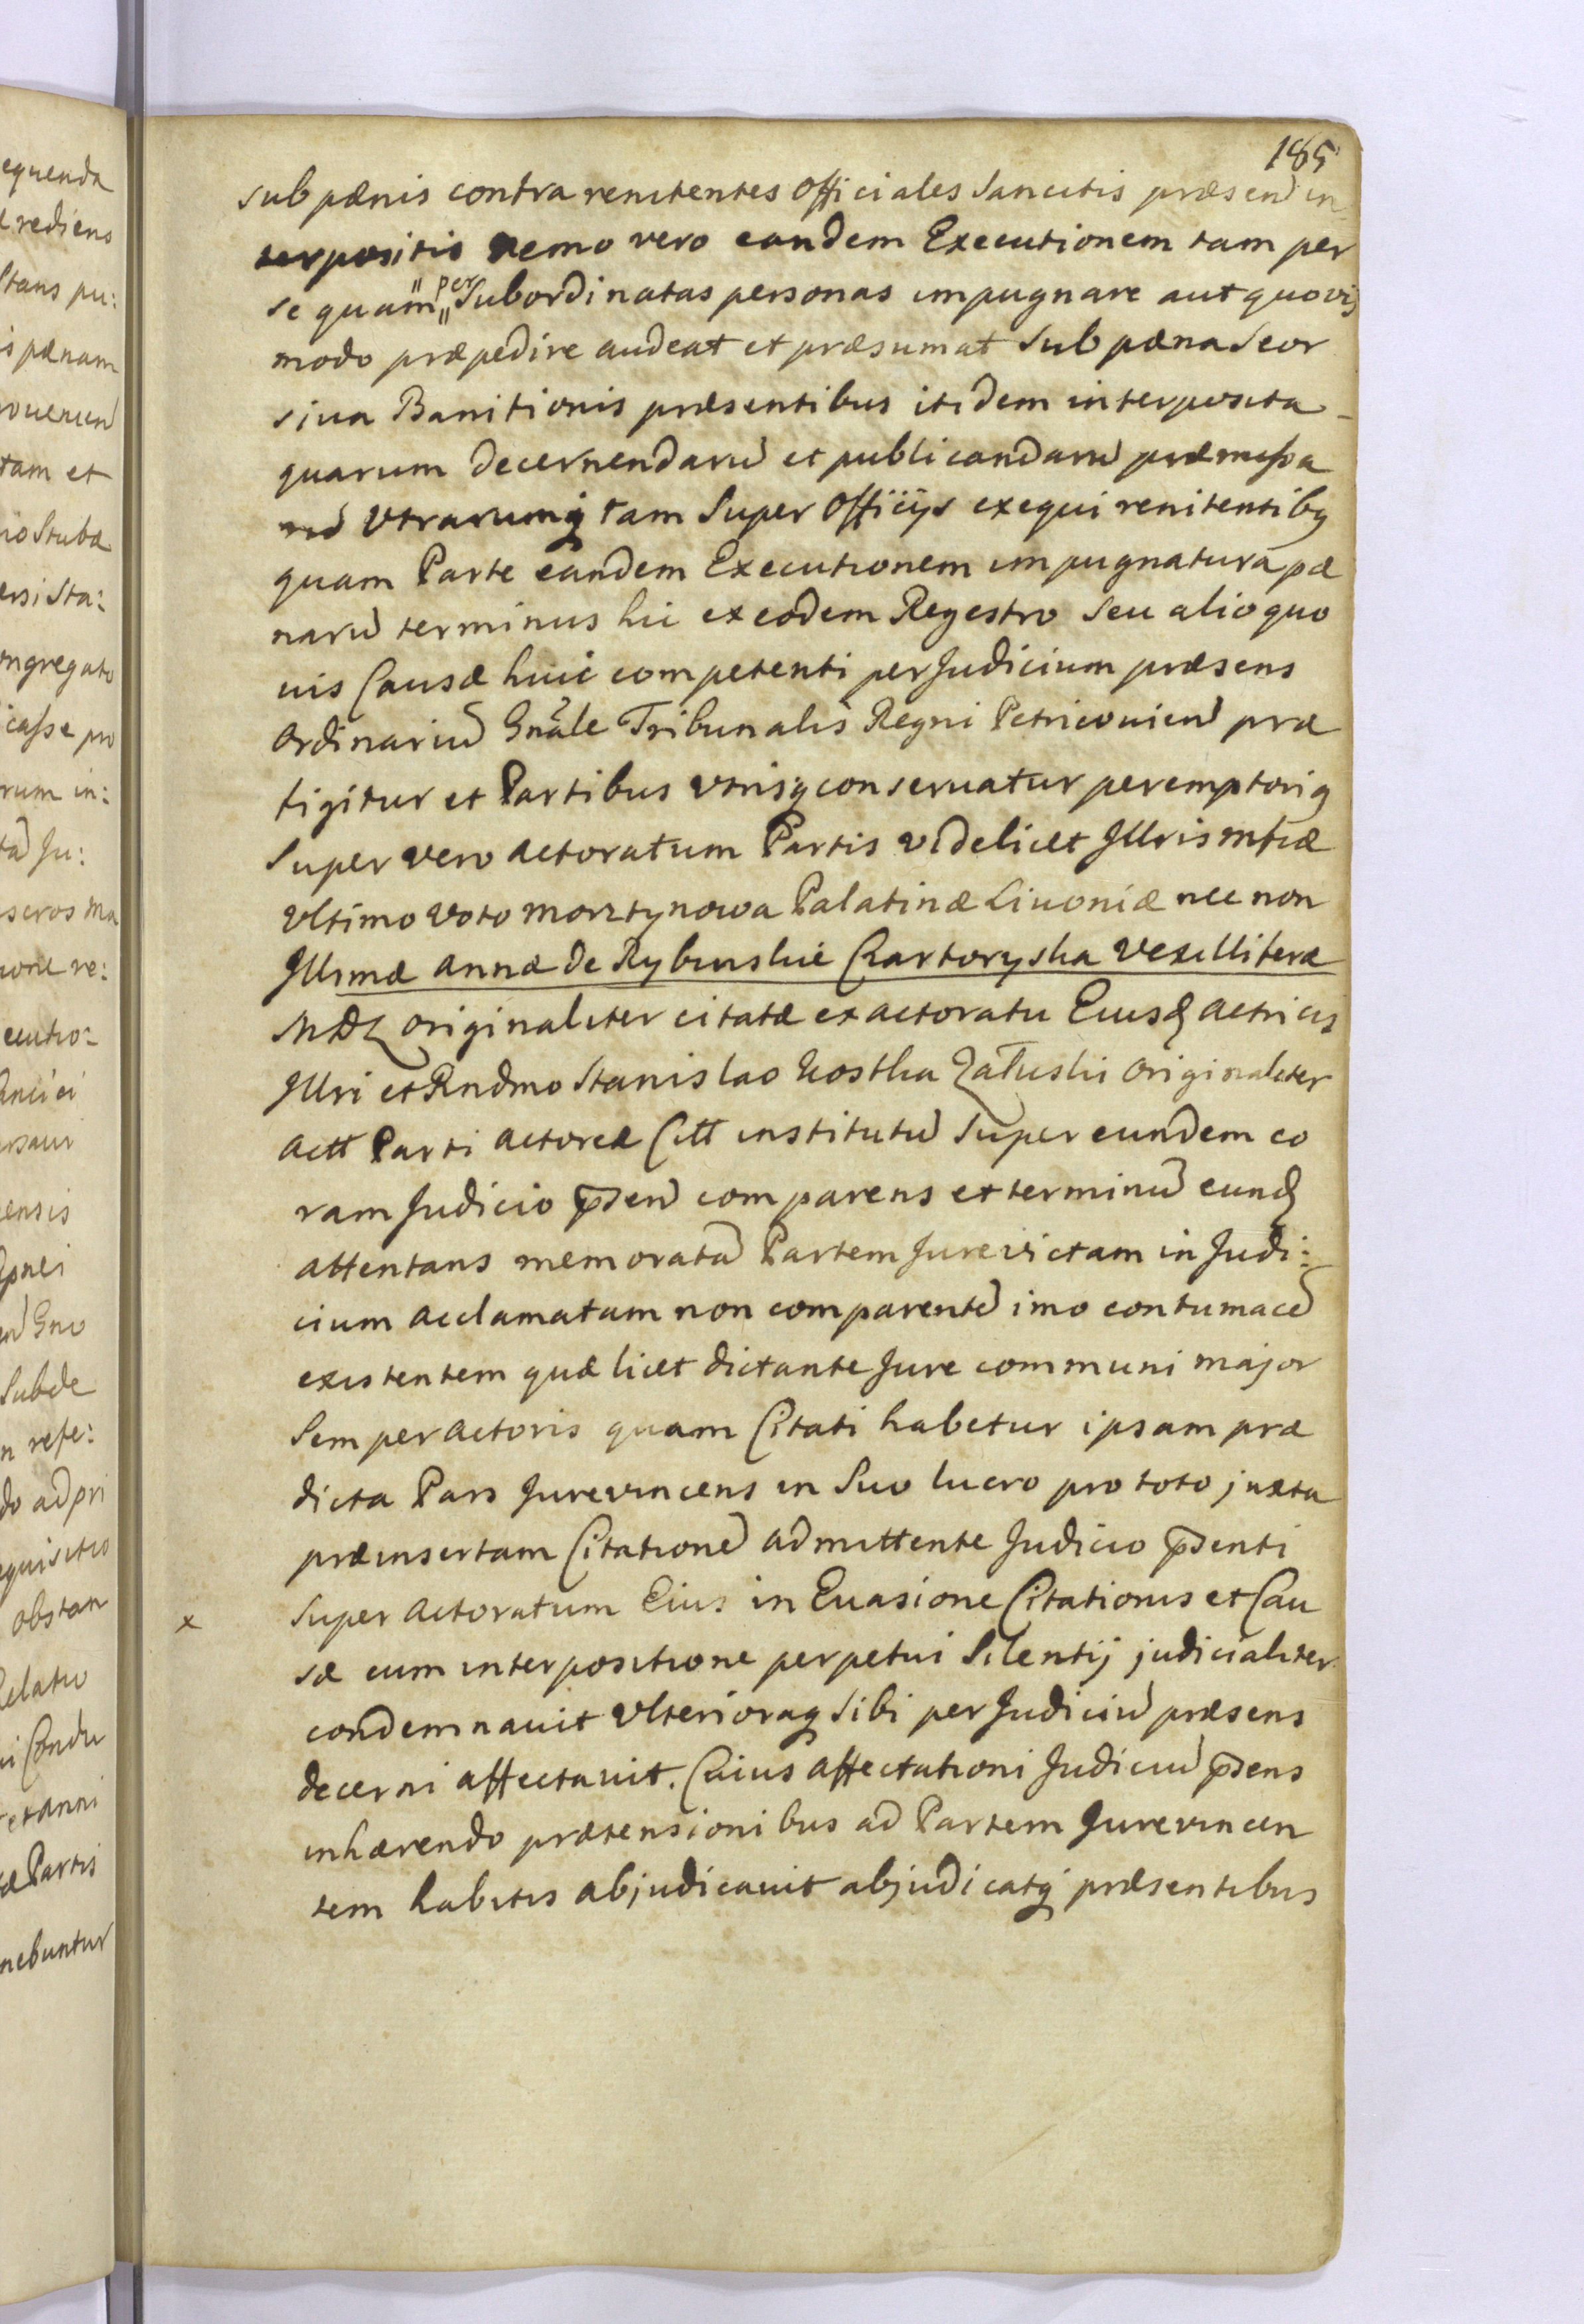 185
sub pænis contra renitentes Officiales Sancitis præsen in
terpositis nemo vero eandem Executionem tam per
se quam per Subordinatas personas impugnare aut quovis
modo præpedire audeat et præsumat sub pæna Seor
siua Banitionis præsentibus itidem interposita
quarum decernendarū et publicandarū præmissa
Vtrarumq tam Super Officijs exequi renitentibq
quam Parte eandem Executionem impugnatura pæ
narū terminus hic ex eodem Regestro seu alio quo
uis Causæ huic competenti per Judicium præsens
Ordinariū Gnāle Tribunalis Regni Petricouien præ
figitur et Partibus vtrisq conseruatur peremptoriq
Super vero actoratum Partis videlicet Jllris Mfcæ
Vltimo Voto Morztynowa Palatinæ Liuoniæ nec non
Jllsmæ Annæ de Rybinskie Czartoryska Vexilliferæ
MDL originaliter citatæ ex actoratu Eiusd Actricis
Jllri et Rndmo Stanislao Kostka Załuski Originaliter
Actt Parti Actoreæ Citt institutū Super eundem co
ram Judicio p̄sen comparens et terminū eund
attentans memoratā Partem Jurevictam in Judi:
cium acclamatam non comparentē imo contumacē
existentem quæ licet dictante Jure communi major
Semper Actoris quam Citati habetur ipsam præ
dicta Pars Jurevincens in Suo lucro pro toto juxta
præinsertam Citationē admittente Judicio p̄senti
x Super Actoratum Eius in Euasione Citationis et Cau
sæ cum interpositione perpetui Silentij judicialiter
condemnauit Vlterioraq Sibi per Judiciū præsens
decerni affectauit. Cuius affectationi Judiciū p̄sens
inhærendo prætensionibus ad Partem Jurevincen
tem habitis abjudicauit abjudicatq præsentibus
equenda
rediens
Stans pu:
pænam
tam et
Stubæ
Sta:
ongregato
icasse pro
rum in:
Ju:
seros Ma
re:
ensis
Gno
Subde
refe:
do ad pri
obstan
Relatio
Condu
et anni
Partis
nebuntur